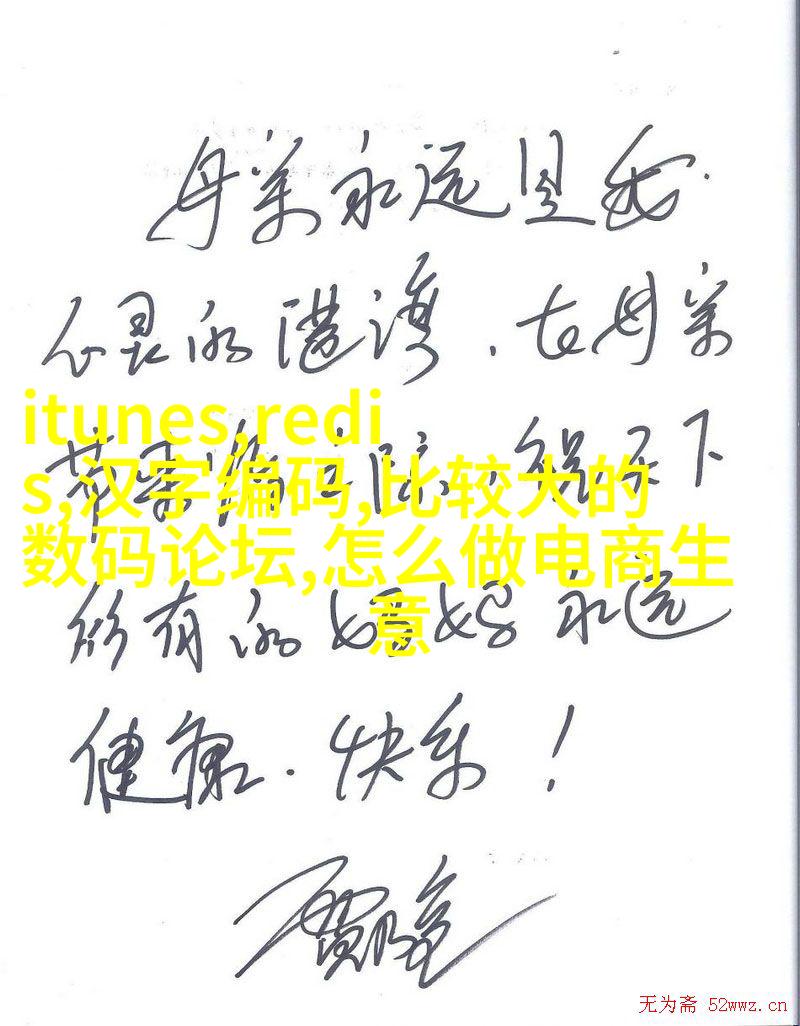 母亲永远是我
心灵的港湾，在母亲
节来临之际，祝天下
所有的妈妈永远
健康、快乐！
itunes,redi
s,汉字编码,比较大的
数码论坛,怎么做电商生
意
无为斋 52wwz.cn